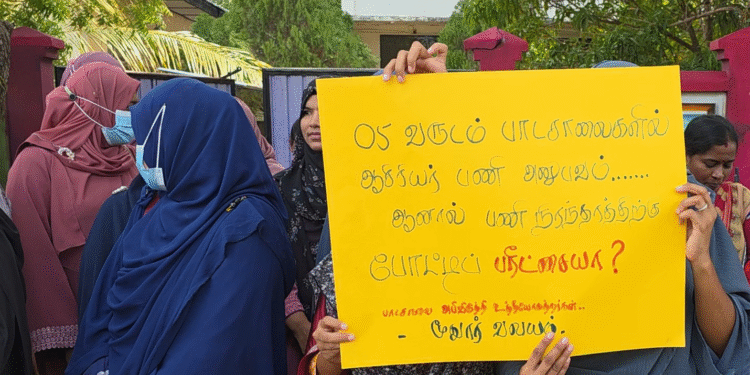 05 வருடம் பாடசாலைகளில்
ஆசிரியர் பணி அனுபவம்......
ஆனால் பணி நிரந்தரத்திற்கு
போட்டிப் பரீட்சையா?
பாடசாலை அபிவிருத்தி உத்தியோகத்தர்கள்..
- மூவார் வலயம்.